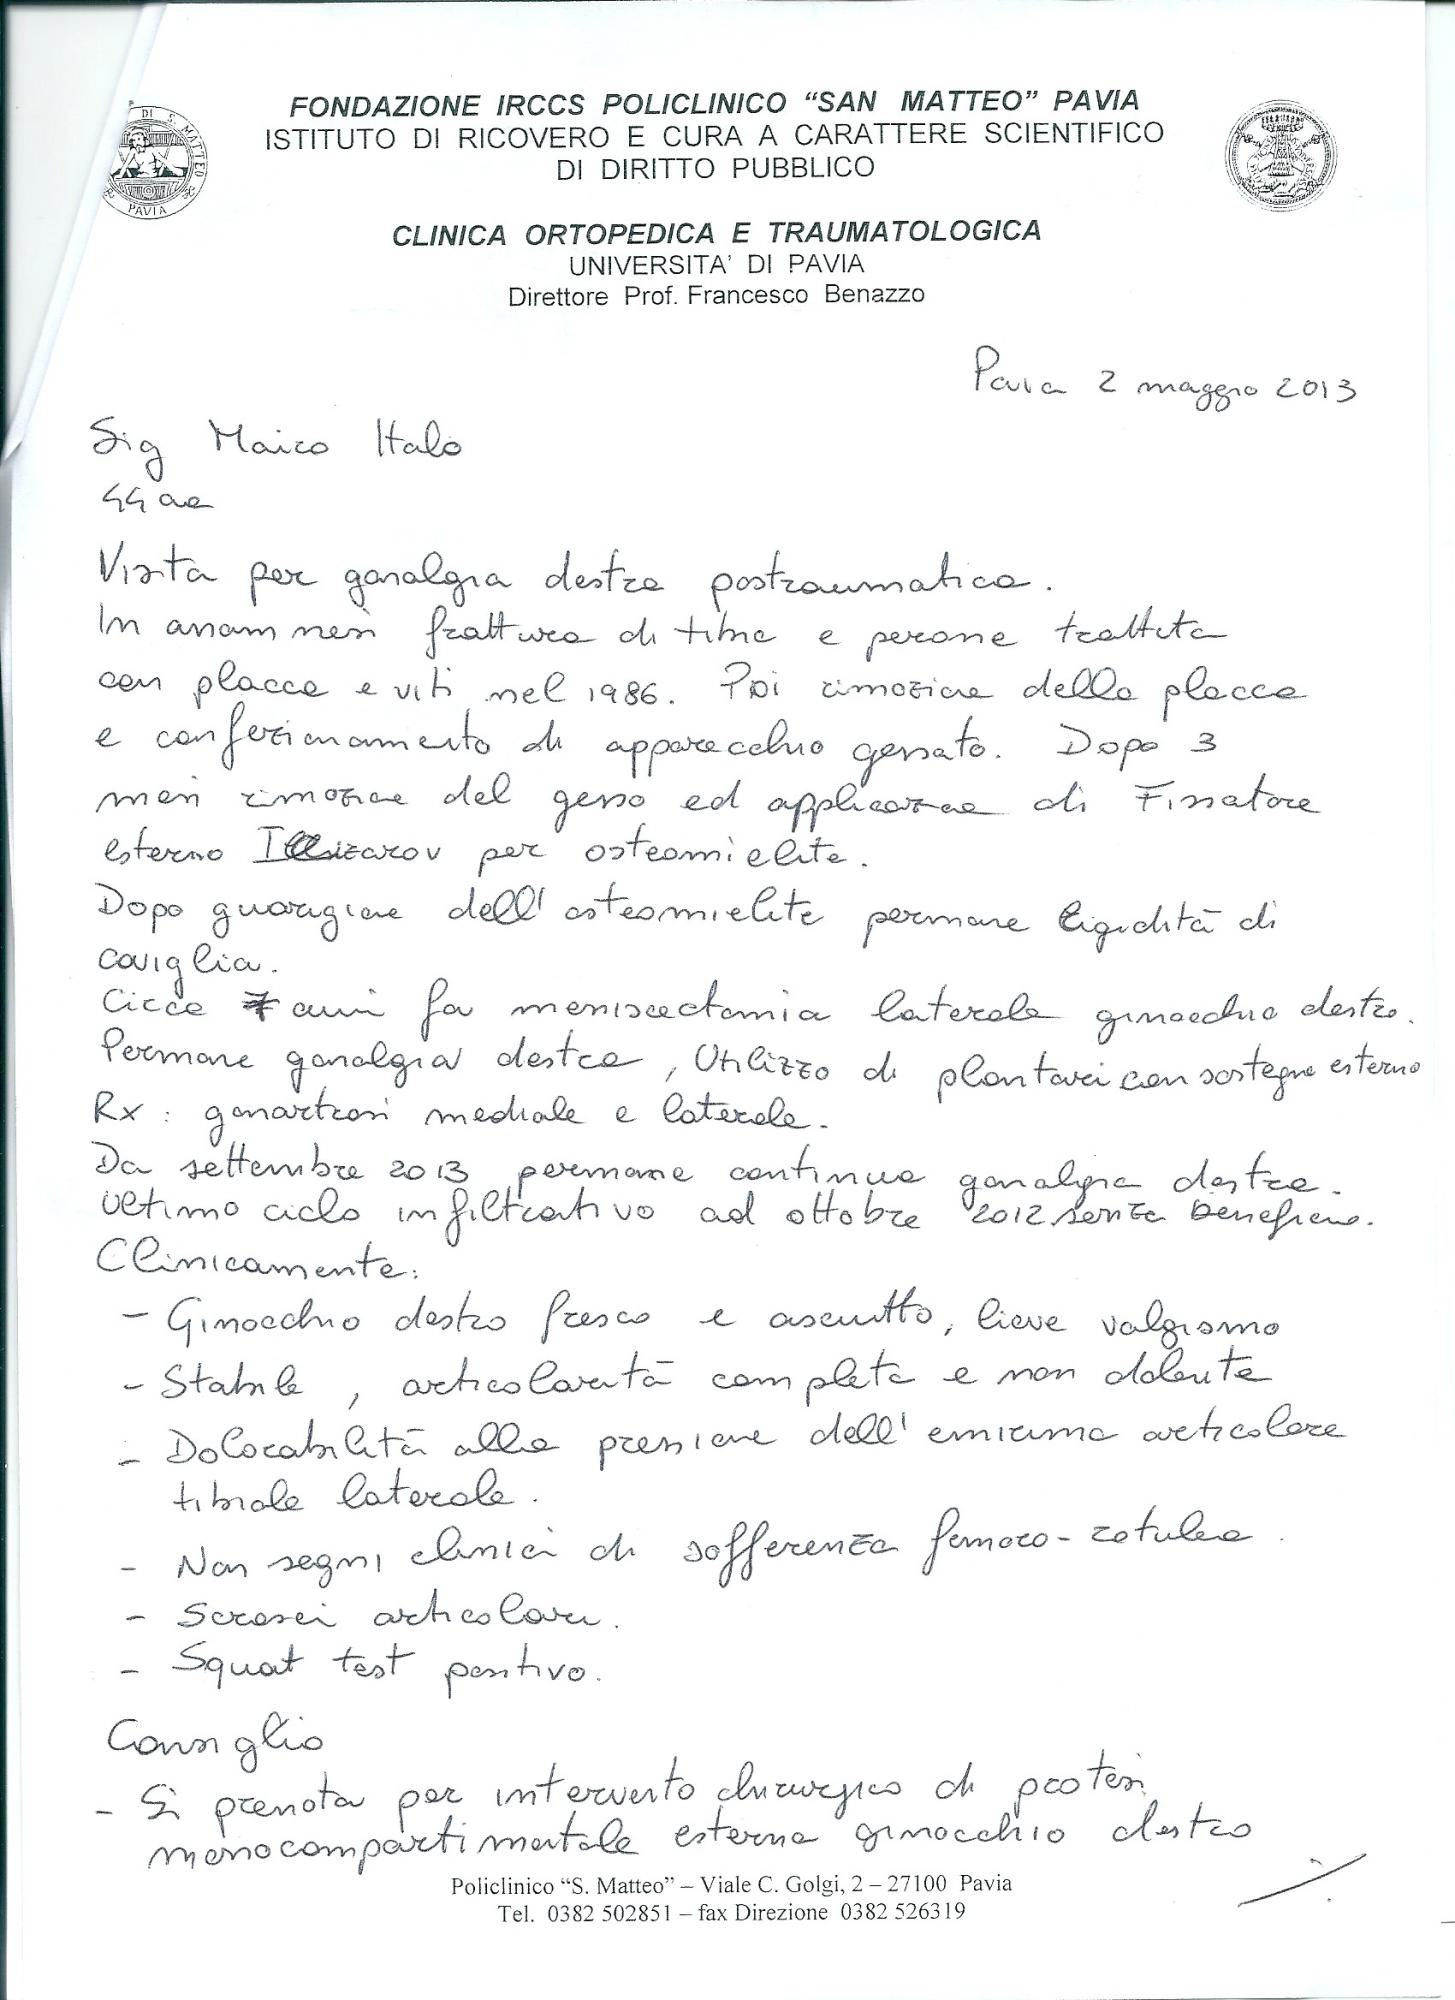 FONDAZIONE IRCCS POLICLINICO “SAN MATTEO” PAVIA
ISTITUTO DI RICOVERO E CURA A CARATTERE SCIENTIFICO
DI DIRITTO PUBBLICO
DI S. MATTEO
PAVIA
CLINICA ORTOPEDICA E TRAUMATOLOGICA
UNIVERSITA’ DI PAVIA
Direttore Prof. Francesco Benazzo
Pavia 2 maggio 2013
Sig Maico Italo
44 aa
Visita per gonalgia destra postraumatica.
In anamnesi frattura di tibia e perone trattata
con placca e viti nel 1986. Poi rimozione della placca
e confezionamento di apparecchio gessato. Dopo 3
mesi rimozione del gesso ed applicazione di Fissatore
esterno Ilizarov per osteomielite.
Dopo guarigione dell' osteomielite permane rigidità di
caviglia.
Circa 7 anni fa meniscectomia laterale ginocchio destro.
Permane gonalgia destra, Utilizzo di plantari con sostegno esterno
Rx : gonartrosi mediale e laterale.
Da settembre 2013 permane continua gonalgia destra.
Ultimo ciclo infiltrativo ad ottobre 2012 senza beneficio.
Clinicamente:
- Ginocchio destro fresco e asciutto, lieve valgismo
- Stabile , articolarità completa e non dolente
- Dolorabilità alla pressione dell' emirima articolare
tibiale laterale.
- Non segni clinici di sofferenza femoro-rotulea.
- Scrosci articolari.
- Squat test positivo.
Consiglio
- Si prenota per intervento chirurgico di protesi
monocompartimentale esterna ginocchio destro
Policlinico “S. Matteo” – Viale C. Golgi, 2 – 27100 Pavia
Tel. 0382 502851 – fax Direzione 0382 526319